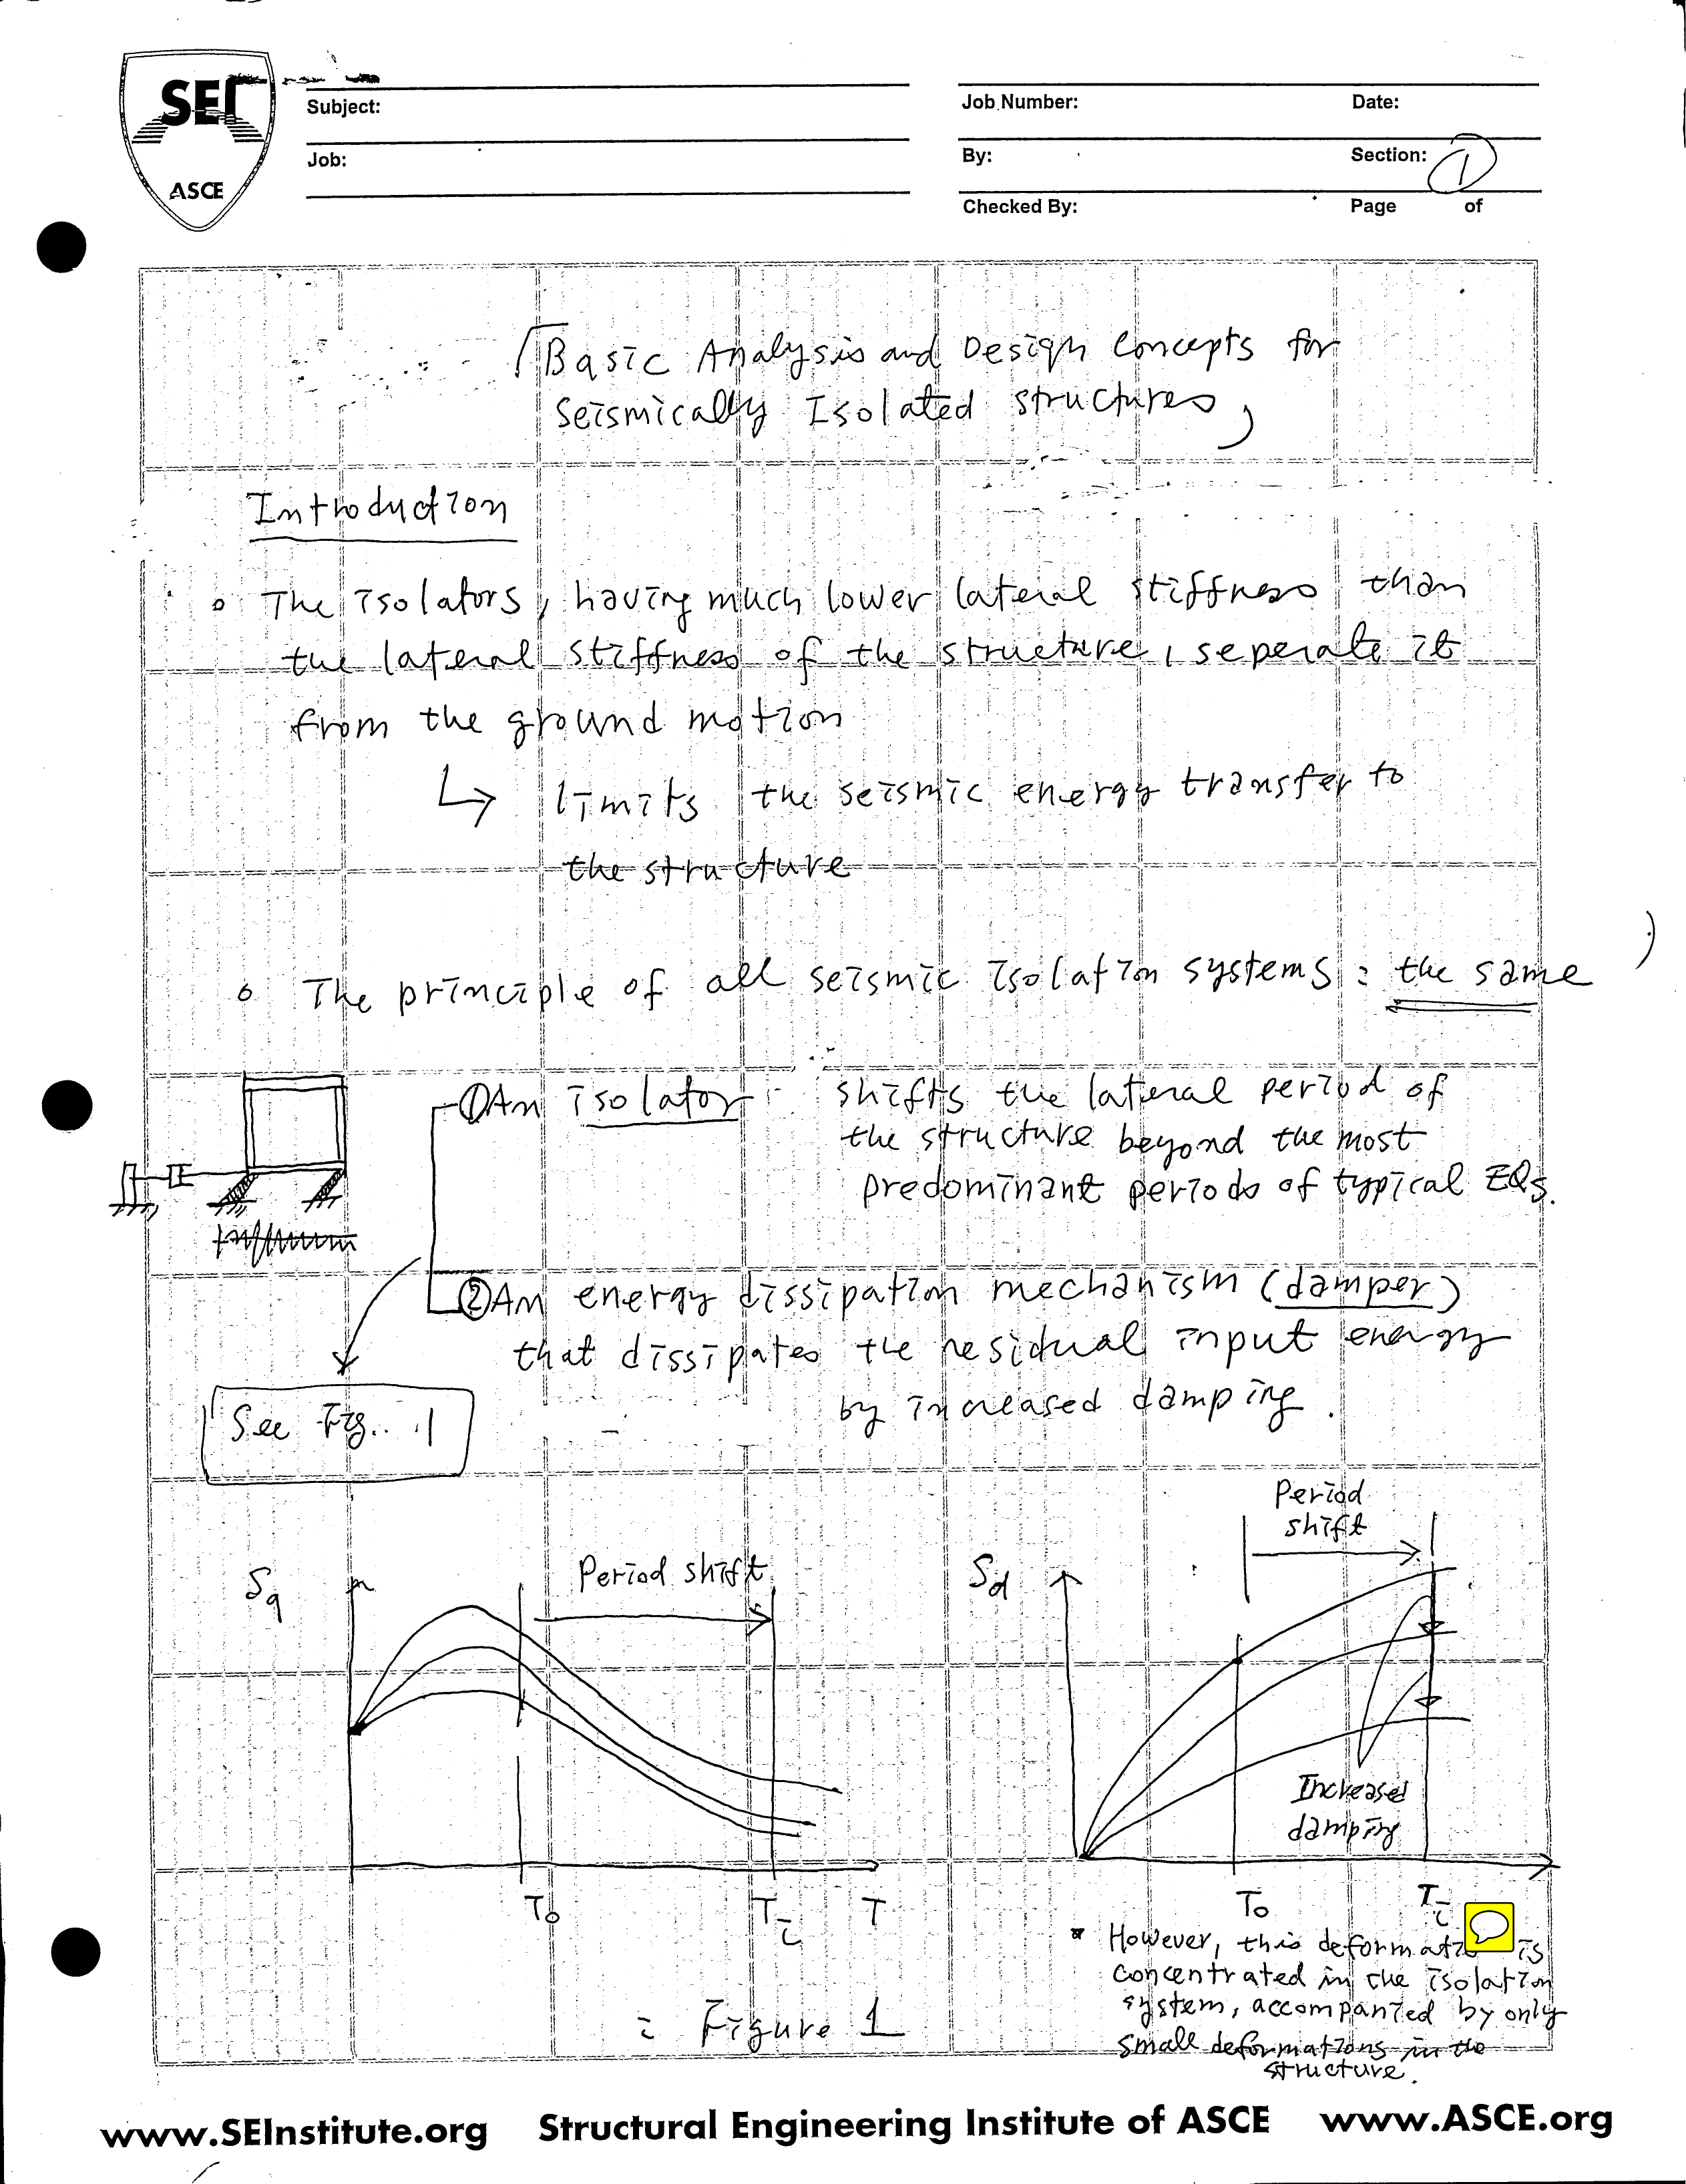 SEI
ASCE
Subject:
Job:
Job Number:
Date:
By:
Section: 1
Checked By:
Page of
Basic Analysis and Design Concepts for
Seismically Isolated structures
Introduction
o The isolators, having much lower lateral stiffness than
the lateral stiffness of the structure, seperate it
from the ground motion
↳ limits the seismic energy transfer to
the structure
o The principle of all seismic isolation systems : the same
① An isolator : shifts the lateral period of
the structure beyond the most
predominant periods of typical EQs.
② An energy dissipation mechanism (damper)
that dissipates the residual input energy
by increased damping.
See Fig. 1
Sa
Period shift
To Ti T
Sd
Period
shift
Increased
damping
To Ti
* However, this deformatio is
concentrated in the isolation
system, accompanied by only
small deformations in the
structure.
: Figure 1
www.SEInstitute.org Structural Engineering Institute of ASCE www.ASCE.org